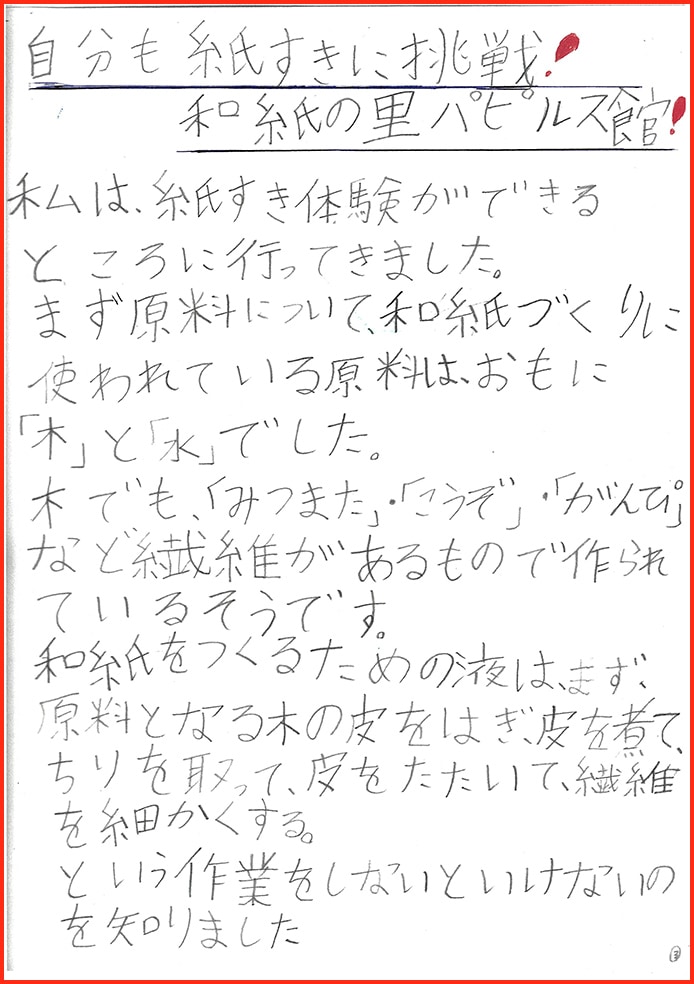 自分も紙すきに挑戦!
和紙の里パピルス館!
私は、紙すき体験ができる
ところに行ってきました。
まず原料について、和紙づくりに
使われている原料は、おもに
「木」と「水」でした。
木でも、「みつまた」・「こうぞ」・「がんぴ」
など繊維があるもので作られ
ているそうです。
和紙をつくるための液は、まず、
原料となる木の皮をはぎ、皮を煮て、
ちりを取って、皮をたたいて、繊維
を細かくする。
という作業をしないといけないの
を知りました
③